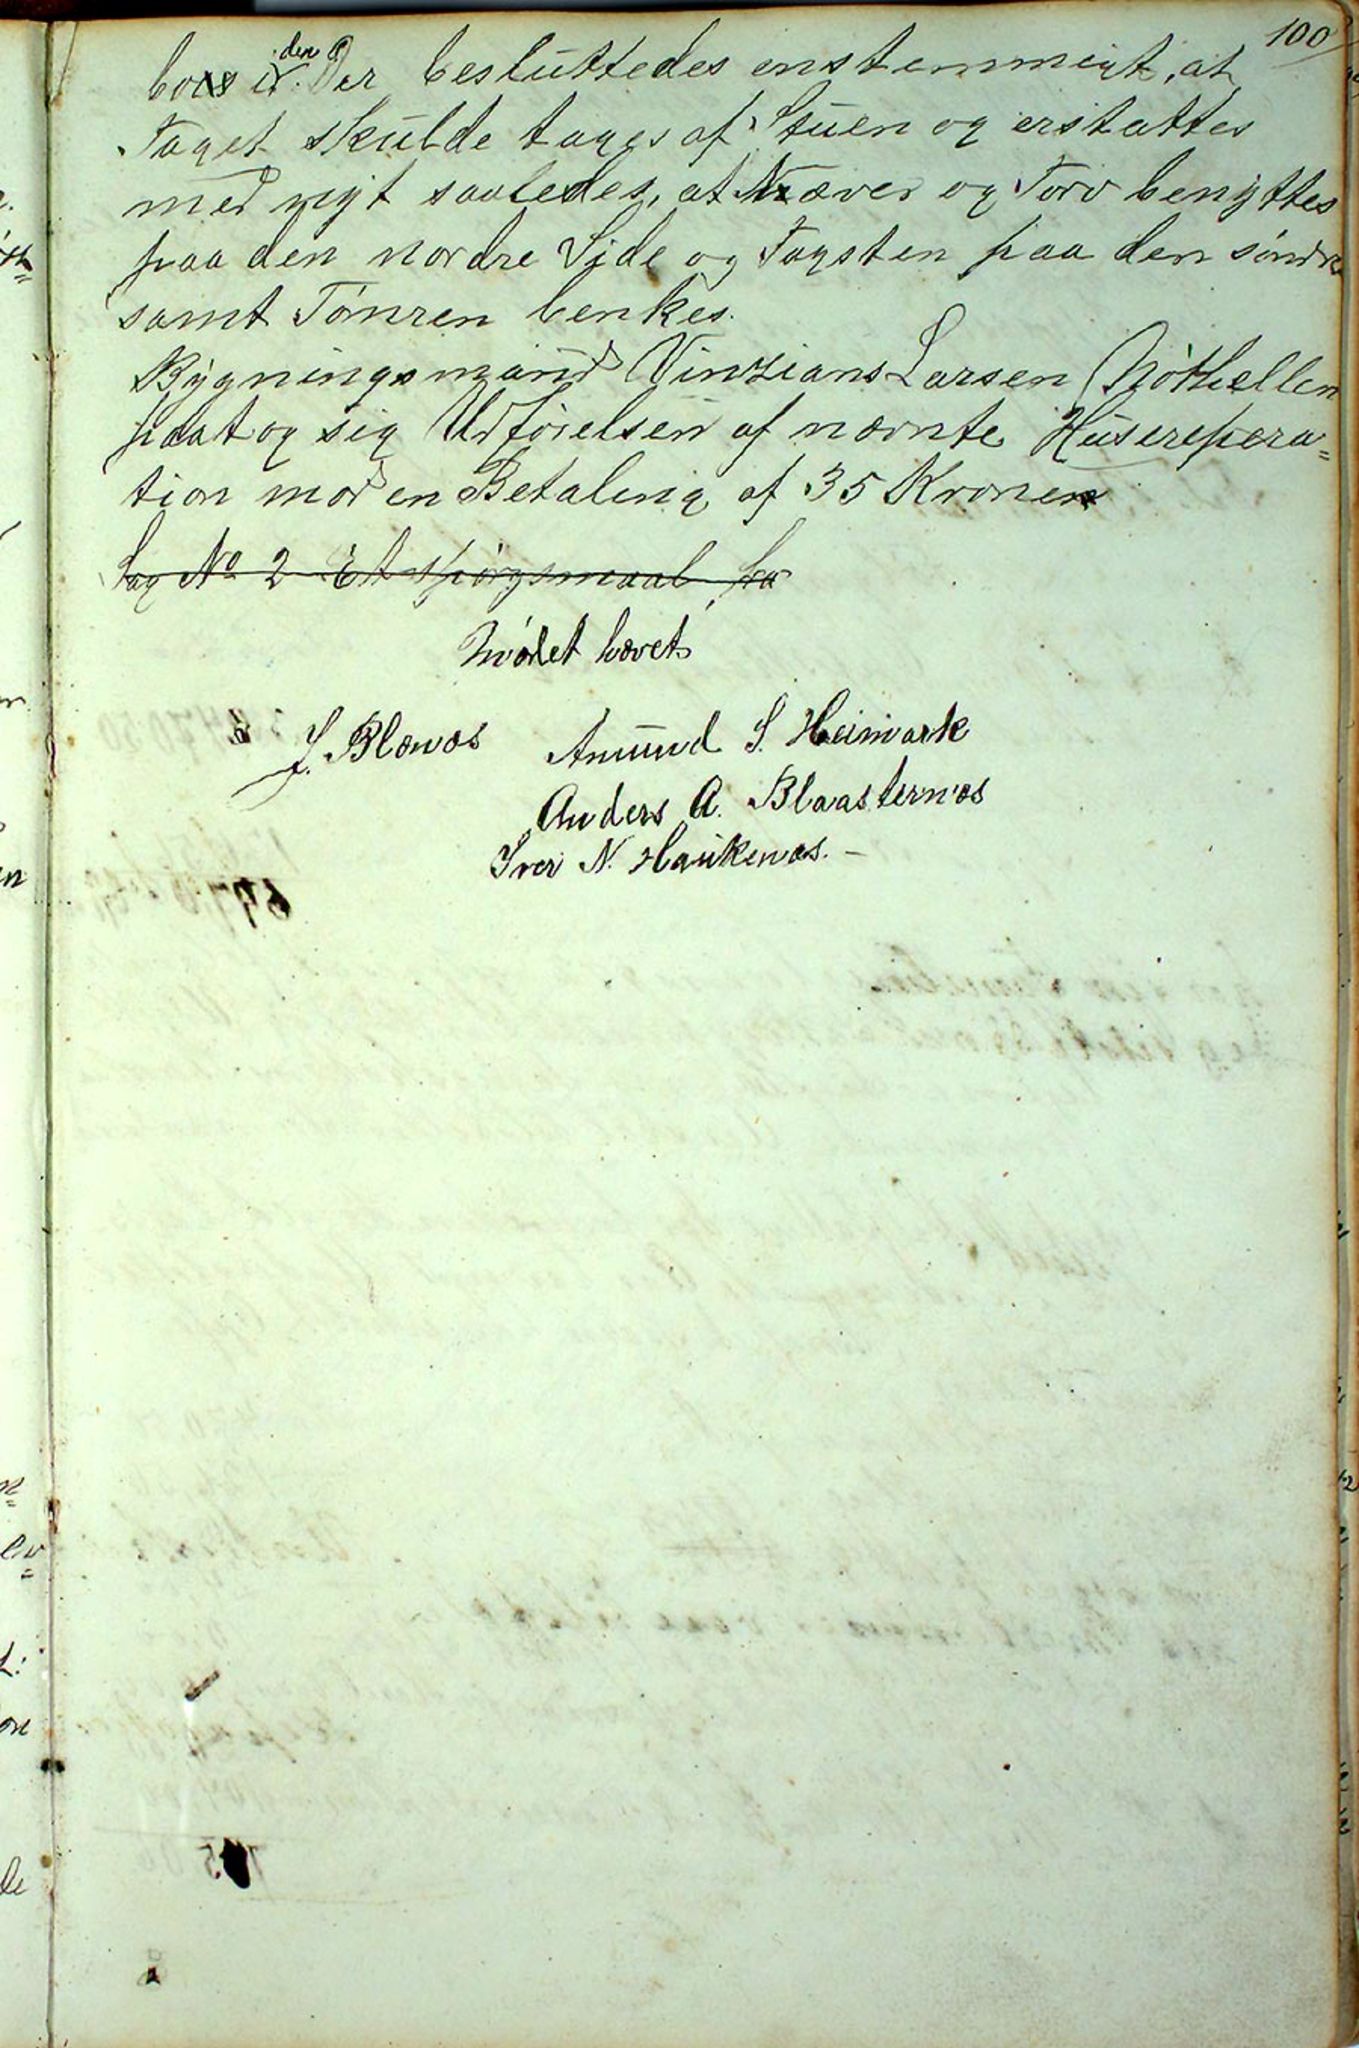 100
den
boes i. Der besluttedes enstemmigt, at
Taget skulde tages af Stuen og erstattes
med nyt saaledes, at Næver og Torv benyttes
paa den nordre Side og Tagsten paa den søndre
samt Tømren benkes.
Bygningsmand Vinzians Larsen Nøthellen
paatog sig Udførelsen af nævnte Huserepera=
tion mod en Betaling af 35 Kroner
Sag No 2 Et spørgsmaal fra
Mødet hævet
J. Blænæs Amund S. Heimark
Anders A. Blaasternæs
Iver N. Haukenæs. –